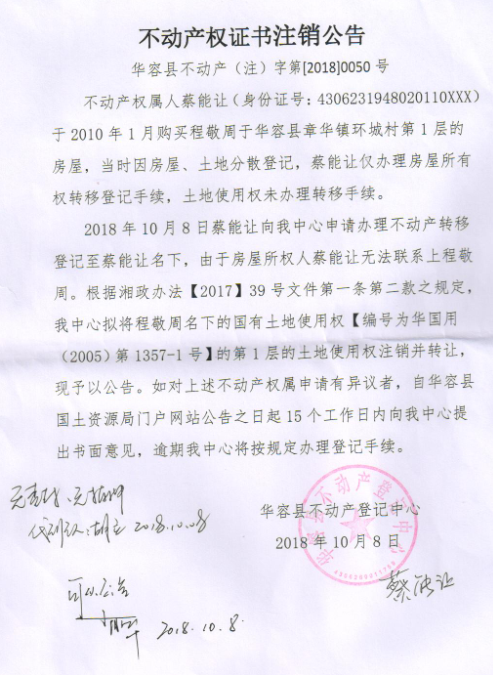 不动产权证书注销公告
华容县不动产（注）字第[2018]0050 号
不动产权属人蔡能让（身份证号：4306231948020110XXX）
于 2010 年 1 月购买程敬周于华容县章华镇环城村第 1 层的
房屋，当时因房屋、土地分散登记，蔡能让仅办理房屋所有
权转移登记手续，土地使用权未办理转移手续。
2018 年 10 月 8 日蔡能让向我中心申请办理不动产转移
登记至蔡能让名下，由于房屋所权人蔡能让无法联系上程敬
周。根据湘政办法【2017】39 号文件第一条第二款之规定，
我中心拟将程敬周名下的国有土地使用权【编号为华国用
（2005）第 1357-1 号】的第 1 层的土地使用权注销并转让，
现予以公告。如对上述不动产权属申请有异议者，自华容县
国土资源局门户网站公告之日起 15 个工作日内向我中心提
出书面意见，逾期我中心将按规定办理登记手续。
华容县不动产登记中心
2018 年 10 月 8 日
华容县不动产登记中心
2018.10.08
蔡能让
可以公告
2018.10.8.